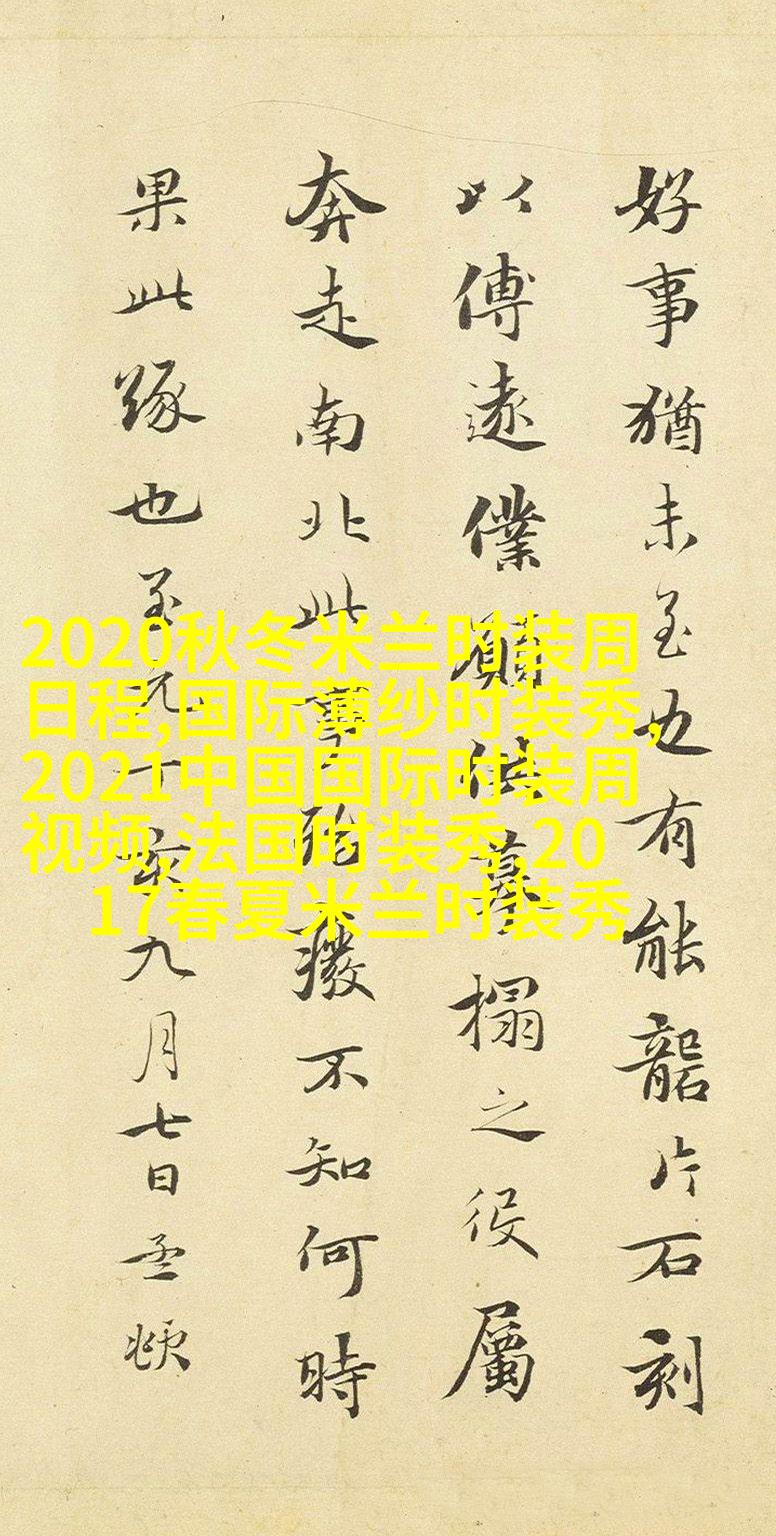 好事猶未至也有能礱片石刻
以傳遠僕願供摹搨之役屬
奔走南北此事殆癈不知何時
果此緣也至元丁亥九月七日孟頫
2020秋冬米兰时装周
日程,国际薄纱时装秀,
2021中国国际时装周
视频,法国时装秀,20
17春夏米兰时装秀